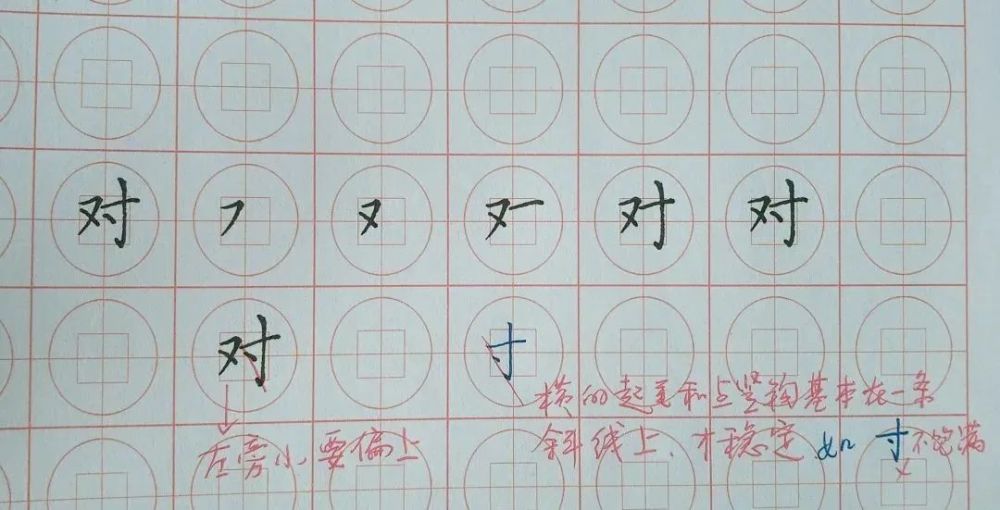 对 フ 又 对 对
对 寸
横的起点和点竖钩基本在一条
左旁小要偏上
斜线上.才稳定 如 寸不饱满